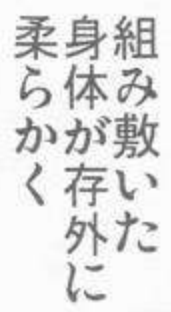 組み敷いた
身体が存外に
柔らかく